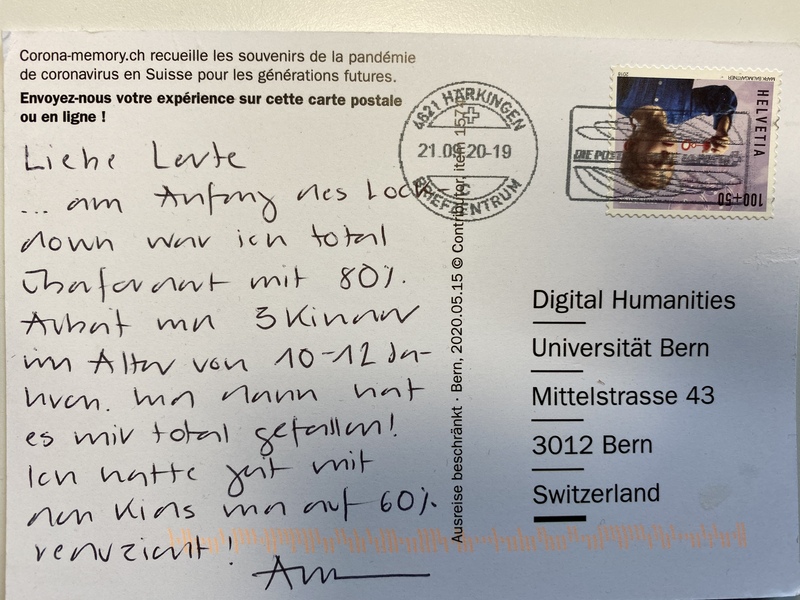 Corona-memory.ch recueille les souvenirs de la pandémie
de coronavirus en Suisse pour les générations futures.
Envoyez-nous votre expérience sur cette carte postale
ou en ligne !
Liebe Leute
... am Anfang des Lock
down war ich total
überfordert mit 80%
Arbeit und 3 Kinder
im Alter von 10-12 Ja-
hren. und dann hat
es mir total gefallen!
Ich hatte Zeit mit
den Kids und auf 60%
reduziert!
4621 HÄRKINGEN
21.09.20-19
BRIEFZENTRUM
DIE POST
HELVETIA
100+50
2018
Ausreise beschränkt · Bern, 2020.05.15 © Contributor, item 1574
Digital Humanities
Universität Bern
Mittelstrasse 43
3012 Bern
Switzerland